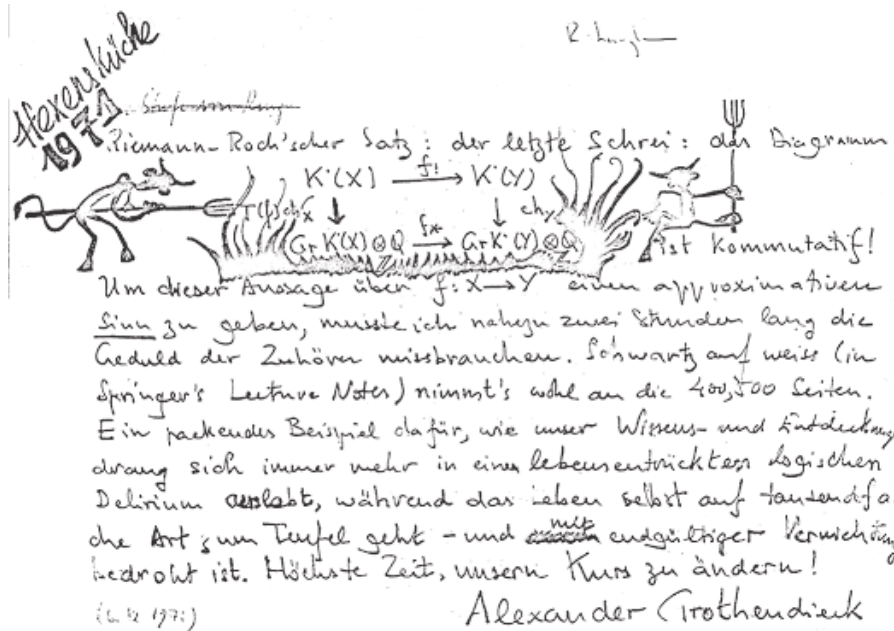 Hexenküche
1971
Riemann-Roch'scher Satz: der letzte Schrei: das Diagramm
K˙(X) f! K˙(Y)
T(f)ch_X f* ch_Y
Gr K˙(X)⊗Q → Gr K˙(Y)⊗Q
ist kommutatif!
Um dieser Aussage über f: X → Y einen approximativen
Sinn zu geben, musste ich nahezu zwei Stunden lang die
Geduld der Zuhörer missbrauchen. Schwartz auf weiss (in
Springer's Lecture Notes) nimmt's wohl an die 400, 500 Seiten.
Ein packendes Beispiel dafür, wie unser Wissens- und Entdeckungs
drang sich immer mehr in einem lebensentrückten logischen
Delirium auslebt, während das Leben selbst auf tausendfa
che Art zum Teufel geht - und mit endgültiger Vernichtung
bedroht ist. Höchste Zeit, unsern Kurs zu ändern!
Alexander Grothendieck